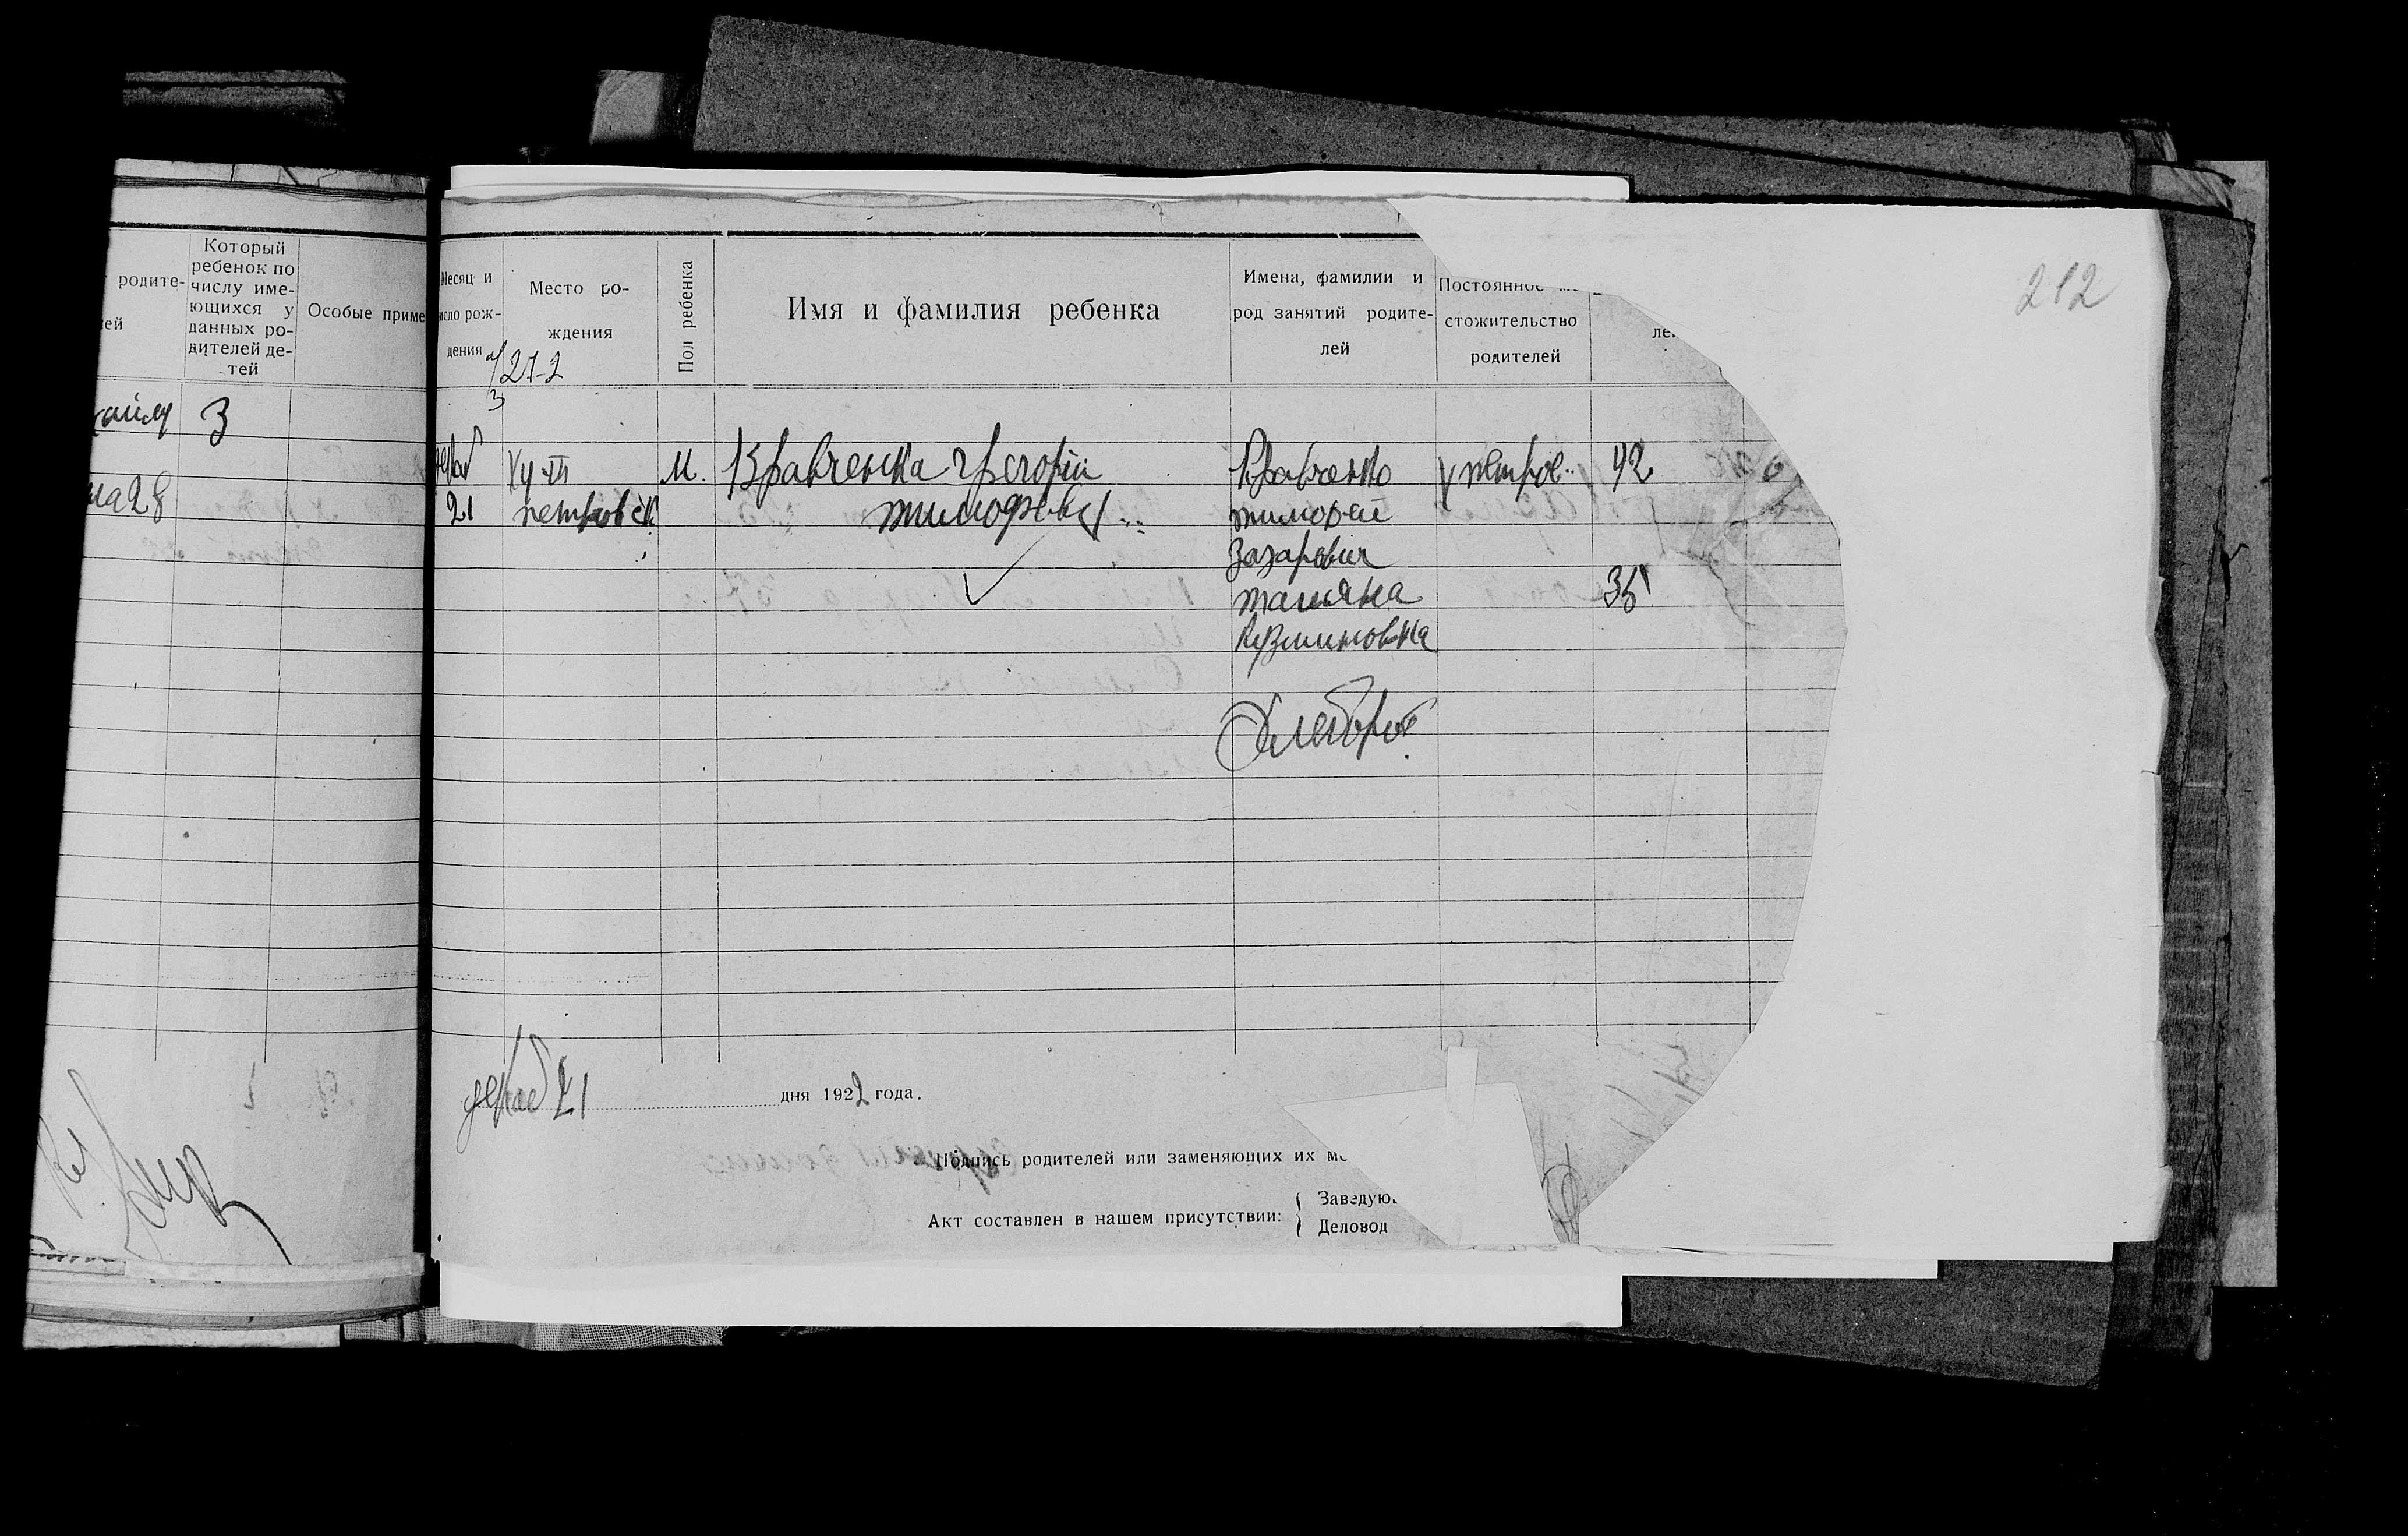 родите-
лей
Который
ребенок по
числу име-
ющихся у
данных ро-
дителей де-
тей
Особые приме
3
28
Месяц и
число рож-
дения
Место ро-
ждения
Пол ребенка
Имя и фамилия ребенка
Имена, фамилии и
род занятий родите-
лей
Постоянное м
стожительство
родителей
ле
212
21-2
декаб
21
М.
Кравченка Грегорій
Кравченко
петров..
42
петровск
тимофов
тимофеі
Захарович
татяна
35
Кузминовна
Хлебороб
декаб 21 дня 1922 года.
Подпись родителей или заменяющих их
Акт составлен в нашем присутствии:
Заведую
Деловод